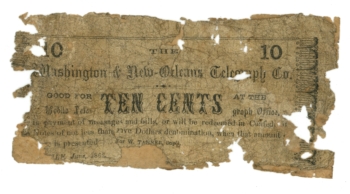 10 THE 10
Washington & New-Orleans Telegraph Co.
GOOD FOR TEN CENTS AT THE
Mobile Tele graph Office,
in payment of messages and tolls, or will be redeemed in
not less than FIVE Dollars denomination, when that amount
is presented.